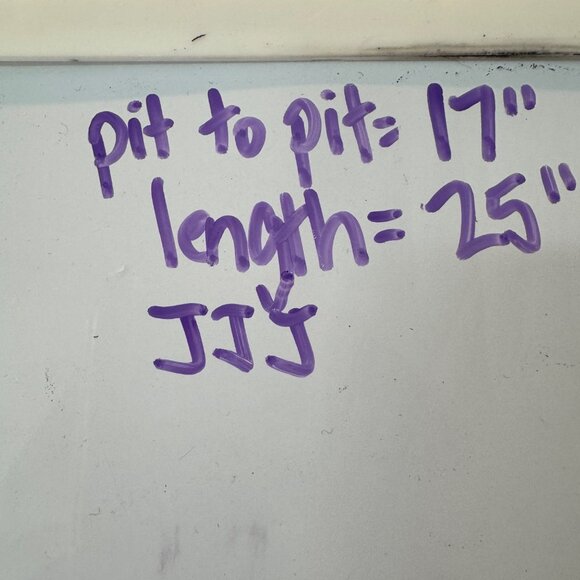 pit to pit= 17"
length= 25"
JJJ